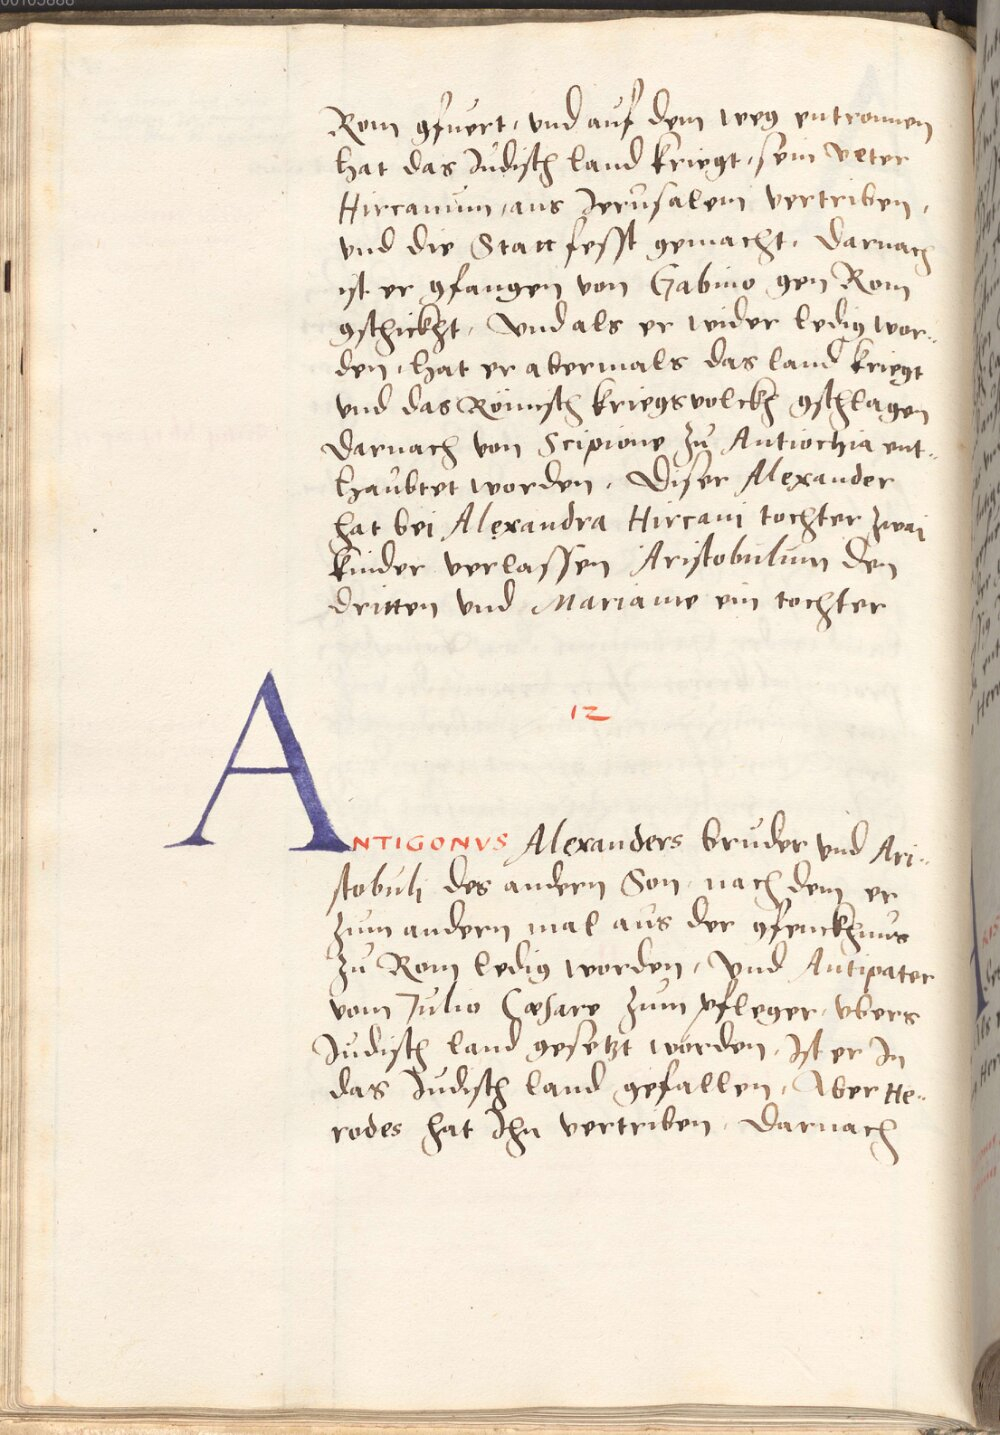 Rom gfuert, vnd auf dem weg entronnen
hat das Iudisch land kriegt, sein veter
Hircanum, aus Jerusalem vertriben,
vnd die Statt fesst gemacht. Darnach
ist er gfangen von Gabinio gen Rom
gschickht, Vnd als er wider ledig wor-
den, hat er abermals das land kriegt
vnd das Römisch kriegsvolckh gschlagen
Darnach von Scipione zu Antiochia ent-
haubtet worden. Diser Alexander
hat bei Alexandra Hircani tochter zwai
kinder verlassen Aristobulum den
dritten vnd Mariame ein tochter
12
ANTIGONVS Alexanders bruder vnd Ari-
stobuli des andern Son, nach dem er
zum andern mal aus der gfenckhnus
zu Rom ledig worden, Vnd Antipater
vom Julio Cæsare zum pfleger vbers
Iudisch land gesetzt worden, Ist er In
das Iudisch land gefallen, Aber He-
rodes hat Ihn vertriben. Darnach